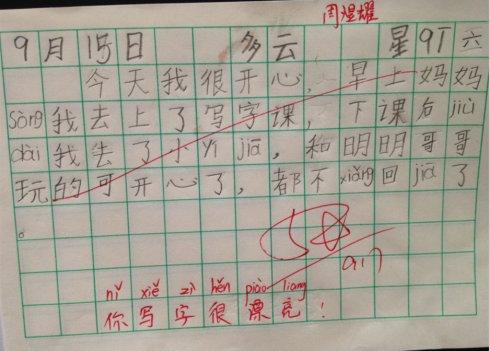 周湦耀
9月15日 多云 星qī六
今天我很开心,早上妈妈
sòng我去上了写字课,下课后jiù
dài我去了小yí jiā,和明明哥哥
玩的可开心了,都不xiǎng回jiā了
。
5☆
9.17
nǐ xiě zì hěn piào liang
你写字很漂亮!